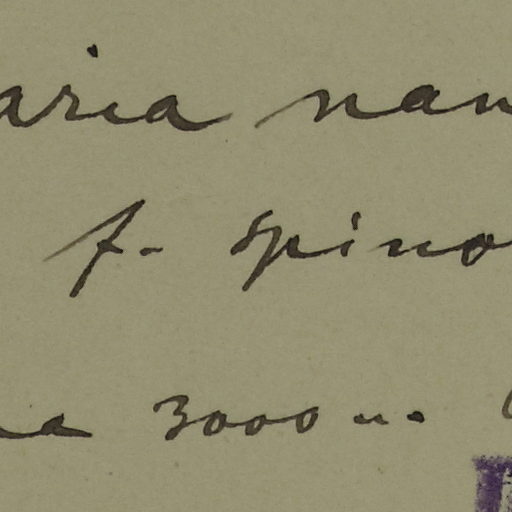 aria nan
f. spino
na 3000 m.